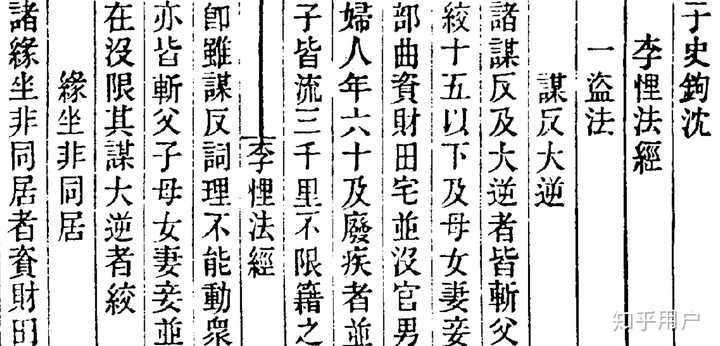 子史鉤沈
李悝法經
一盜法
謀反大逆
諸謀反及大逆者皆斬父
絞十五以下及母女妻妾
部曲資財田宅並沒官男
婦人年六十及廢疾者並
子皆流三千里不限籍之
李悝法經
卽雖謀反詞理不能動衆
亦皆斬父子母女妻妾並
在沒限其謀大逆者絞
緣坐非同居
諸緣坐非同居者資財田
知乎用户